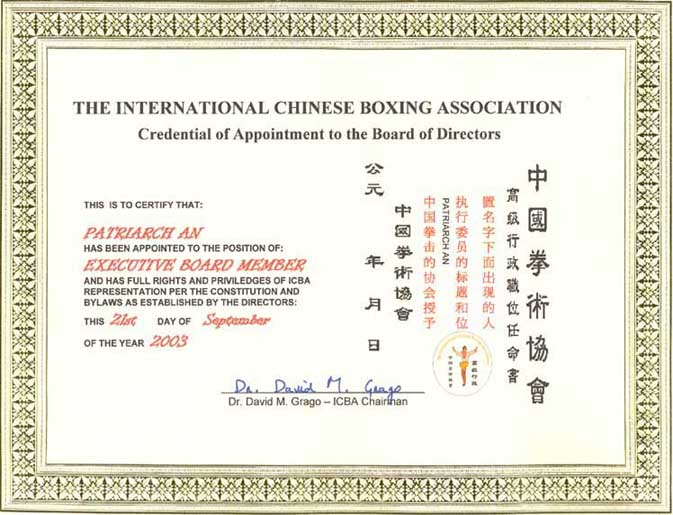 THE INTERNATIONAL CHINESE BOXING ASSOCIATION
Credential of Appointment to the Board of Directors
THIS IS TO CERTIFY THAT:
PATRIARCH AN
HAS BEEN APPOINTED TO THE POSITION OF:
EXECUTIVE BOARD MEMBER
AND HAS FULL RIGHTS AND PRIVILEDGES OF ICBA
REPRESENTATION PER THE CONSTITUTION AND
BYLAWS AS ESTABLISHED BY THE DIRECTORS:
THIS 21st DAY OF September
OF THE YEAR 2003
中國拳術協會
高級行政職位任命書
置名字下面出現的人
执行委员的标题和位
PATRIARCH AN
中国拳击的协会授予
中國拳術協會
公元 年 月 日
Dr. David M. Grago
Dr. David M. Grago – ICBA Chairman